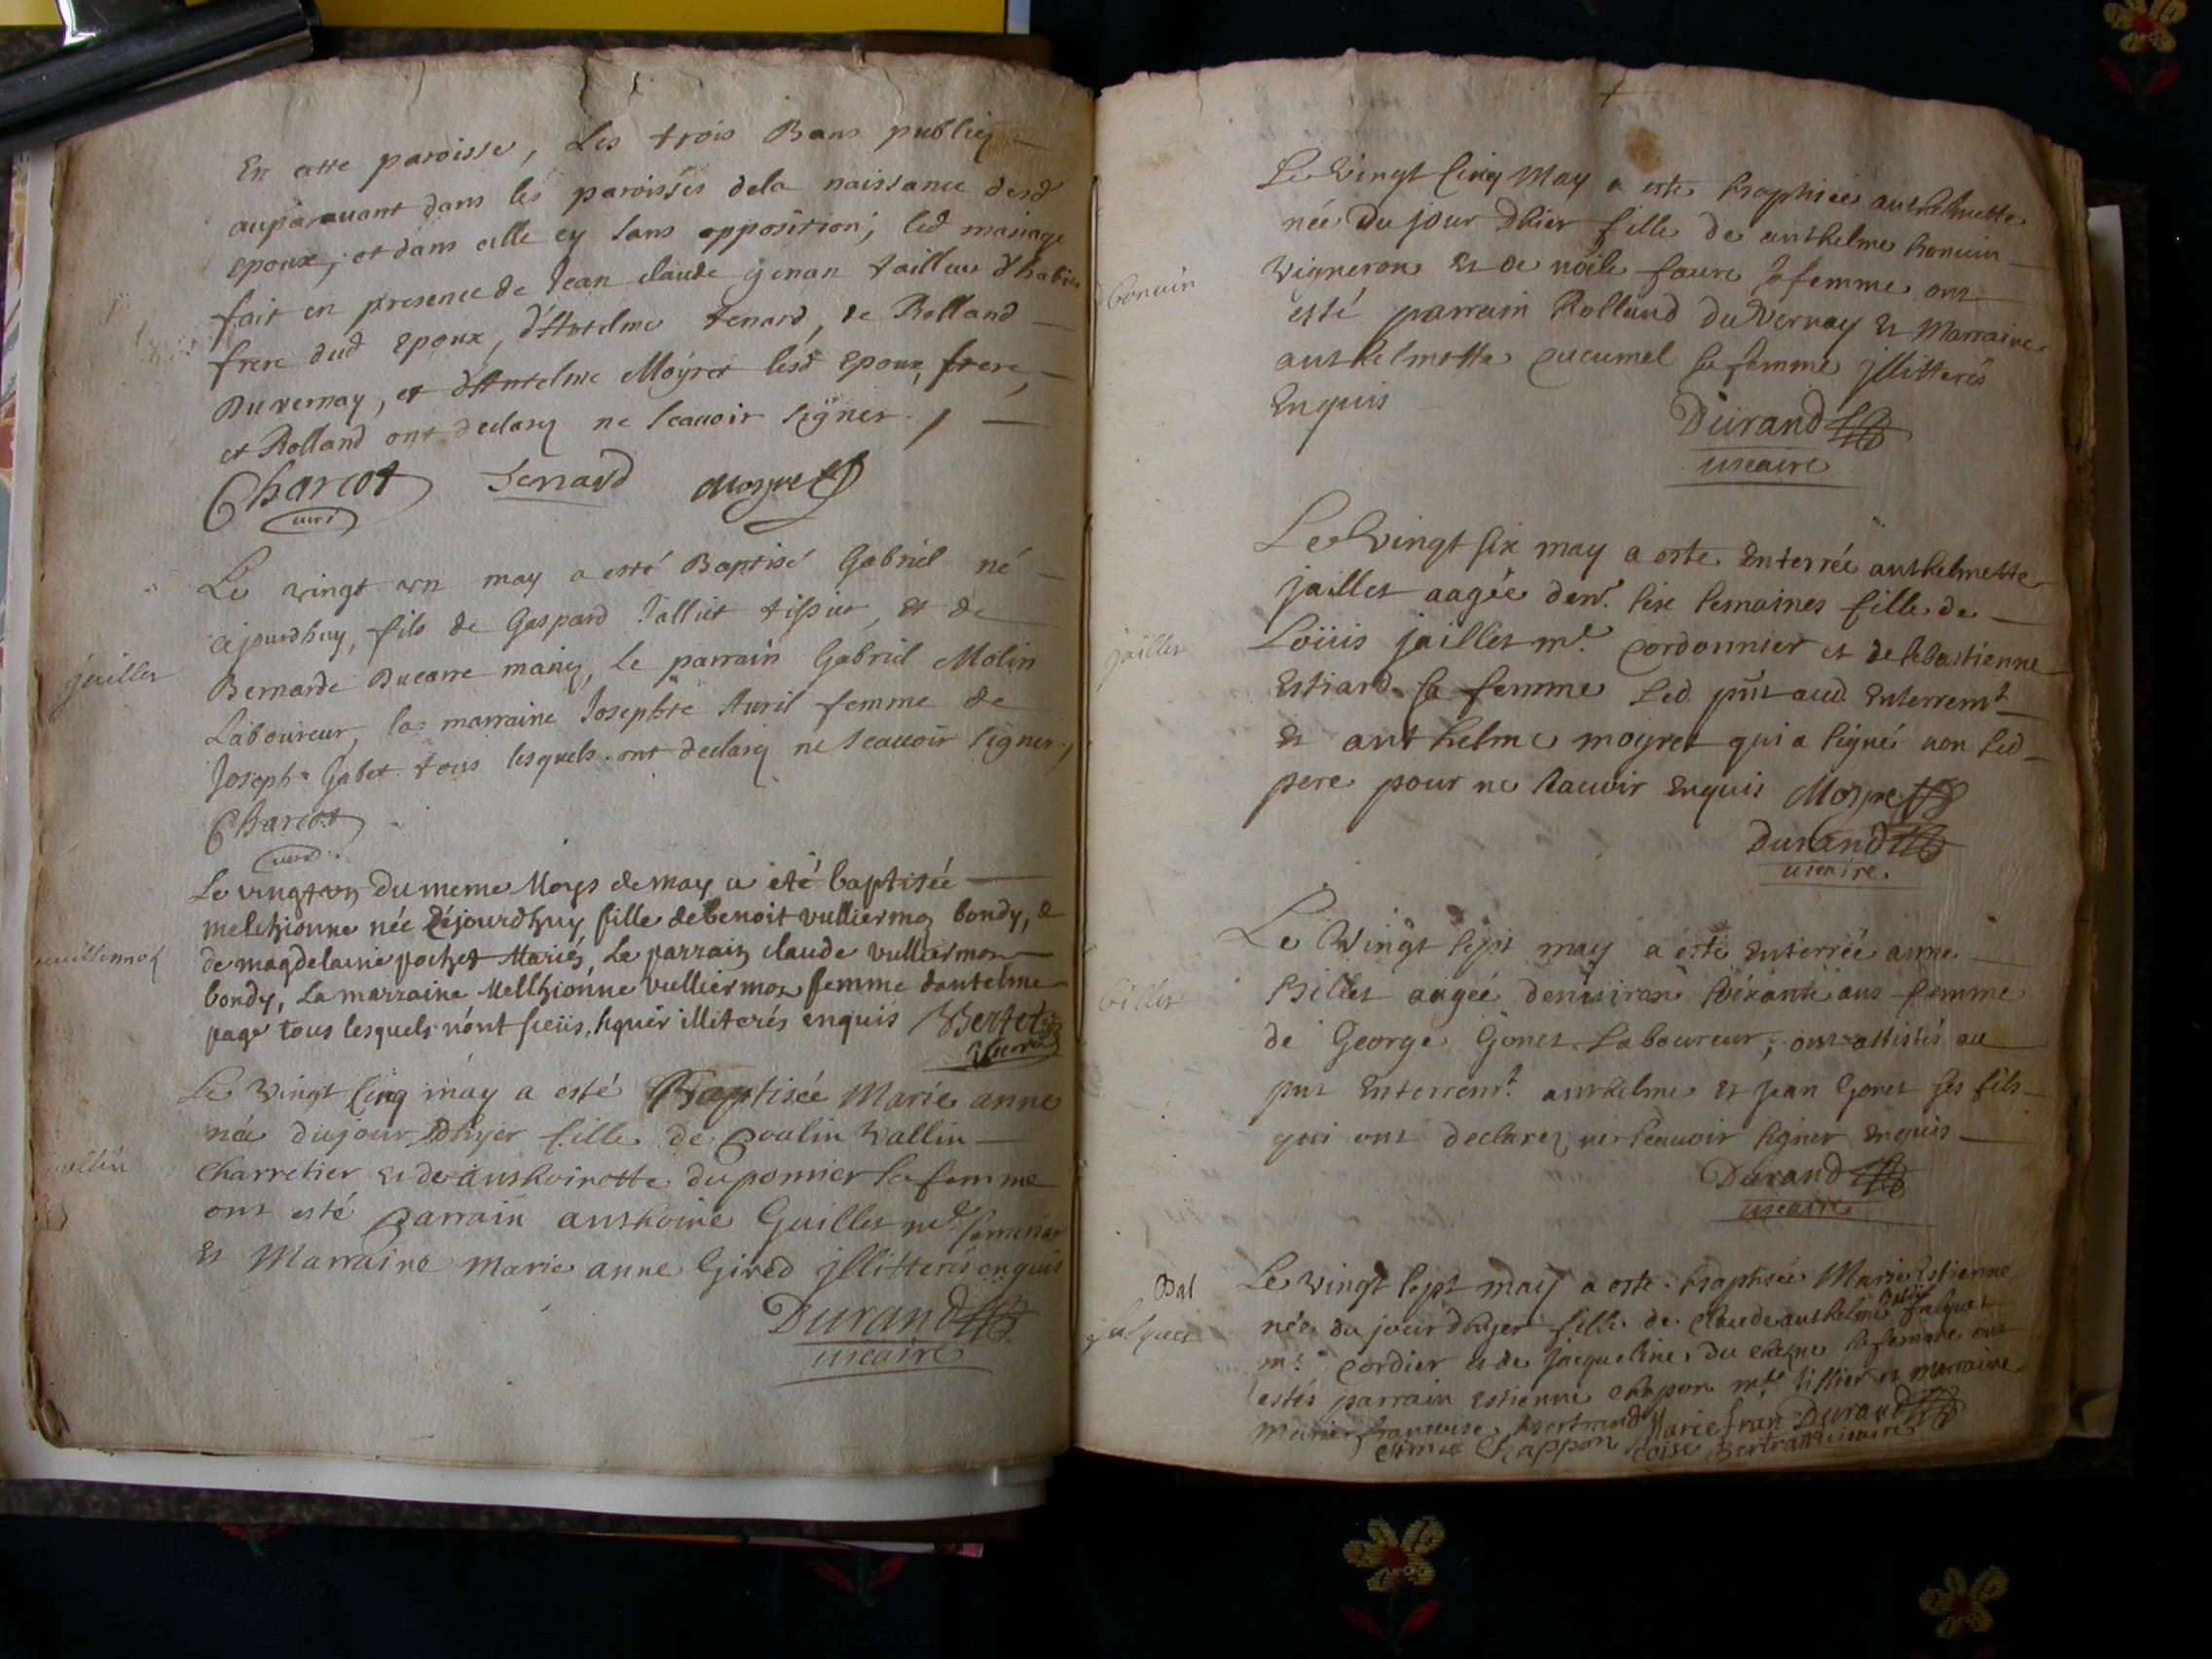 En cette paroisse, Les trois Bans publiez
auparauant dans les paroisses dela naissance desd
epoux; et dans celle cy sans opposition; led mariage
fait en presence de Jean claude genan tailleur d'habits
frere dud Epoux, d'Antelme Tenard, de Rolland
Duvernay, et d'Antelme Moyret lesd Epoux, frere,
et Rolland ont declarez ne scauoir signer.
Charcot Tenard Moyret
curé
Le vingt un may a esté Baptisé Gabriel né
ajourdhuy, fils de Gaspard Jalliet tissier, et de
jaillet
Bernarde Ducarre mariez, Le parrain Gabriel Molin
Laboureur, la marraine Josephte Auril femme de
Joseph Gabet tous lesquels ont declarez ne scauoir signer.
Charcot
curé
Le vingt un Du meme Moys de may a été baptisée
melchionne née Déjourdhuy fille debenoit vulliermoz bondy, &
de magdelaine pochet Mariés, Le parrain claude vulliermoz
bondy, La marraine Melchionne vulliermoz femme dantelme
page tous lesquels n'ont sceüs signer illiterés enquis Bertet
Vicaire
Le Vingt Cinq may a esté Baptisée Marie anne
née dujour Dhyer fille de Poulin Vallin
vallin
Charretier et de anthoinette dupomier sa femme
ont esté Parrain anthoine Guillet md
et Marraine Marie anne Gired jllitterés enquis
Durand
uicaire
Le Vingt Cinq May a este baptisée anthelmette
née Du jour Dhier fille de anthelme bonuin
bonuin
Vigneron et de noile faure sa femme ont
esté parrain Rolland DuVernay et Marraine
anthelmette cucumel sa femme jllitterés
Enquis
Durand
uicaire
Le Vingt six may a este Enterrée anthelmette
jaillet aagée denv. six semaines fille de
jaillet
Loüis jaillet md. cordonnier et de sebastienne
Estiard sa femme Led pnt aud Enterremt
et anthelme moyret qui a signé non led
pere pour ne scauoir Enquis Moyret
Durand
uicaire.
Le Vingt sept may a este Enterrée anne
billet
Billet aagée denuiron soixante ans femme
de George Gonet Laboureur, ont assistés au
pnt Enterremt. anthelme et Jean Gonet ses fils
qui ont declarez ne scauoir signer Enquis
Durand
uicaire
Bal
Le Vingt sept may a este baptisée Marie Estienne
falquet
née du jour dhyer fille de Claude anthelme Bal falquet
md. cordier et de Jacqueline du chesne sa femme ont
estés parrain Estienne chapon md tissier et marraine
Marie francoise bertrand Marie fran Durand
Etiene Chappon coise Bertrand uicaire